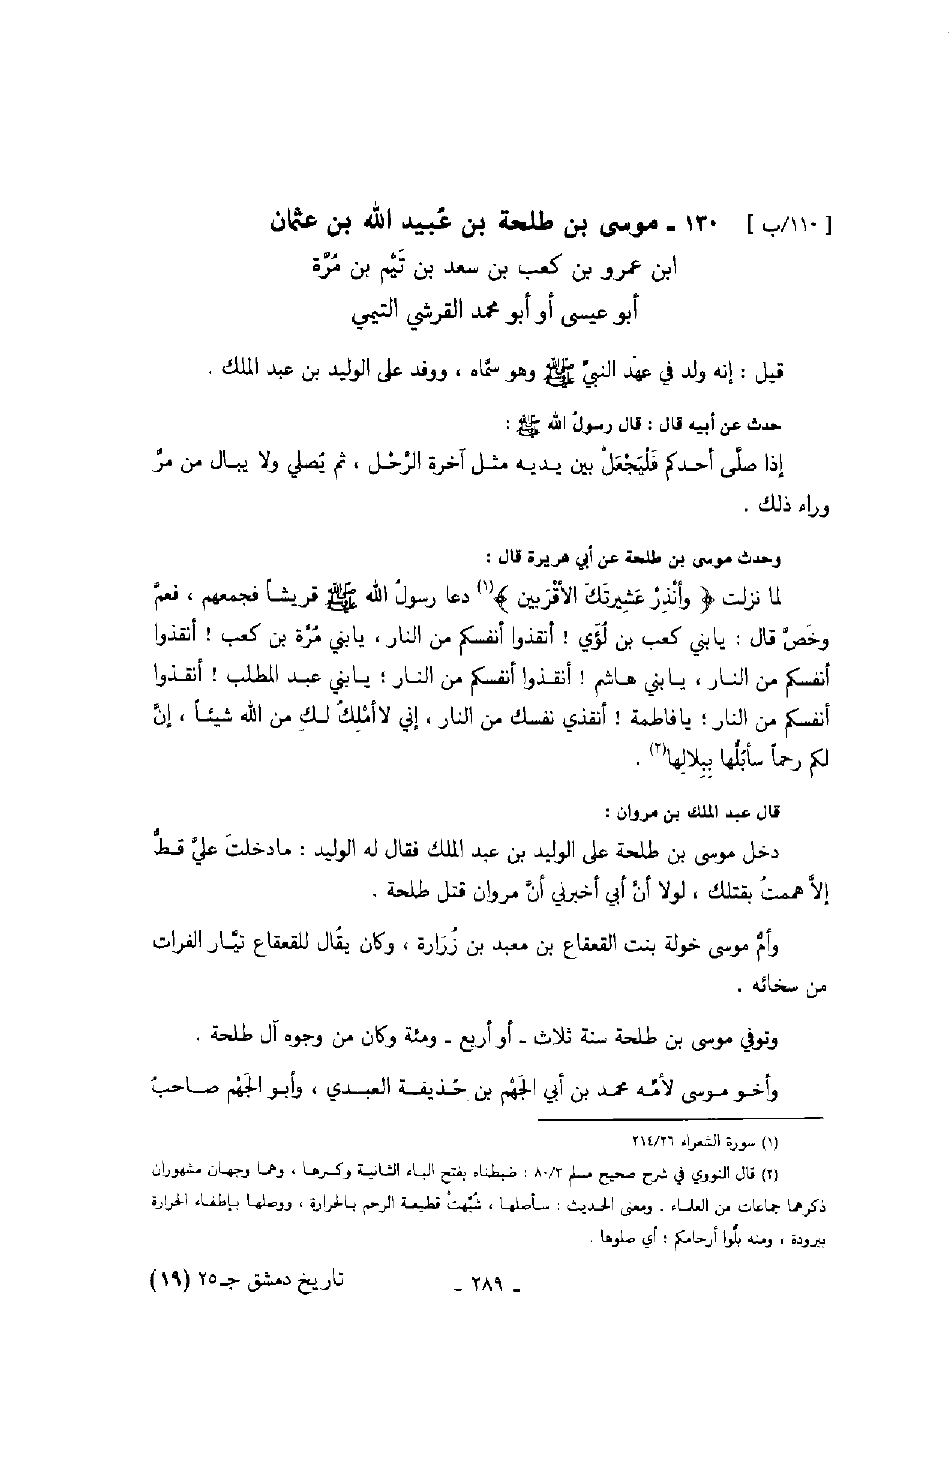 [ ١١٠/ب ] ١٣٠ ـ موسى بن طلحة بن عُبيد الله بن عثمان
ابن عمرو بن كعب بن سعد بن تَيْم بن مُرَّة
أبو عيسى أو أبو محمد القرشي التيمي
قيل : إنه ولد في عهد النبيِّ ﷺ وهو سمَّاه ، ووفد على الوليد بن عبد الملك .
حدث عن أبيه قال : قال رسولُ الله ﷺ :
إذا صلَّى أحدكم فَلْيَجْعَلْ بين يديه مثل آخرة الرَّحْل ، ثم يُصلي ولا يبال من مرَّ
وراء ذلك .
وحدث موسى بن طلحة عن أبي هريرة قال :
لما نزلت ﴿ وأَنْذِرْ عَشِيرتَكَ الأقْرَبين ﴾(١) دعا رسولُ الله ﷺ قريشاً فجمعهم ، فعمَّ
وخَصَّ قال : يابني كعب بن لُؤَي ! أنقذوا أنفسكم من النار ، يابني مُرَّة بن كعب ! أنقذوا
أنفسكم من النار ، يابني هاشم ! أنقذوا أنفسكم من النار ؛ يابني عبد المطلب ! أنقذوا
أنفسكم من النار ؛ يافاطمة ! أنقذي نفسك من النار ، إني لاأمْلكُ لكِ من الله شيئاً ، إنَّ
لكم رحماً سأبُلُّها بِبِلالِها(٢) .
قال عبد الملك بن مروان :
دخل موسى بن طلحة على الوليد بن عبد الملك فقال له الوليد : مادخلتَ عليَّ قطُّ
إلاَّ هممتُ بقتلك ، لولا أنَّ أبي أخبرني أنَّ مروان قتل طلحة .
وأمُّ موسى خولة بنت القعقاع بن معبد بن زُرَارة ، وكان يقُال للقعقاع تيَّار الفرات
من سخائه .
وتوفي موسى بن طلحة سنة ثلاث ـ أو أربع ـ ومئة وكان من وجوه آل طلحة .
وأخو موسى لأمّه محمد بن أبي الجَهْم بن حُذيفة العبدي ، وأبو الجَهْم صاحبُ
(١) سورة الشعراء ٢١٤/٢٦
(٢) قال النووي في شرح صحيح مسلم ٨٠/٣ : ضبطناه بفتح الباء الثانية وكسرها ، وهما وجهان مشهوران
ذكرهما جماعات من العلماء . ومعنى الحديث : سأصلها ، شُبِّهتْ قطيعة الرحم بالحرارة ، ووصلها بإطفاء الحرارة
ببرودة ، ومنه بلُّوا أرحامكم ؛ أي صلوها .
ـ ٢٨٩ ـ
تاريخ دمشق جـ٢٥ (١٩)